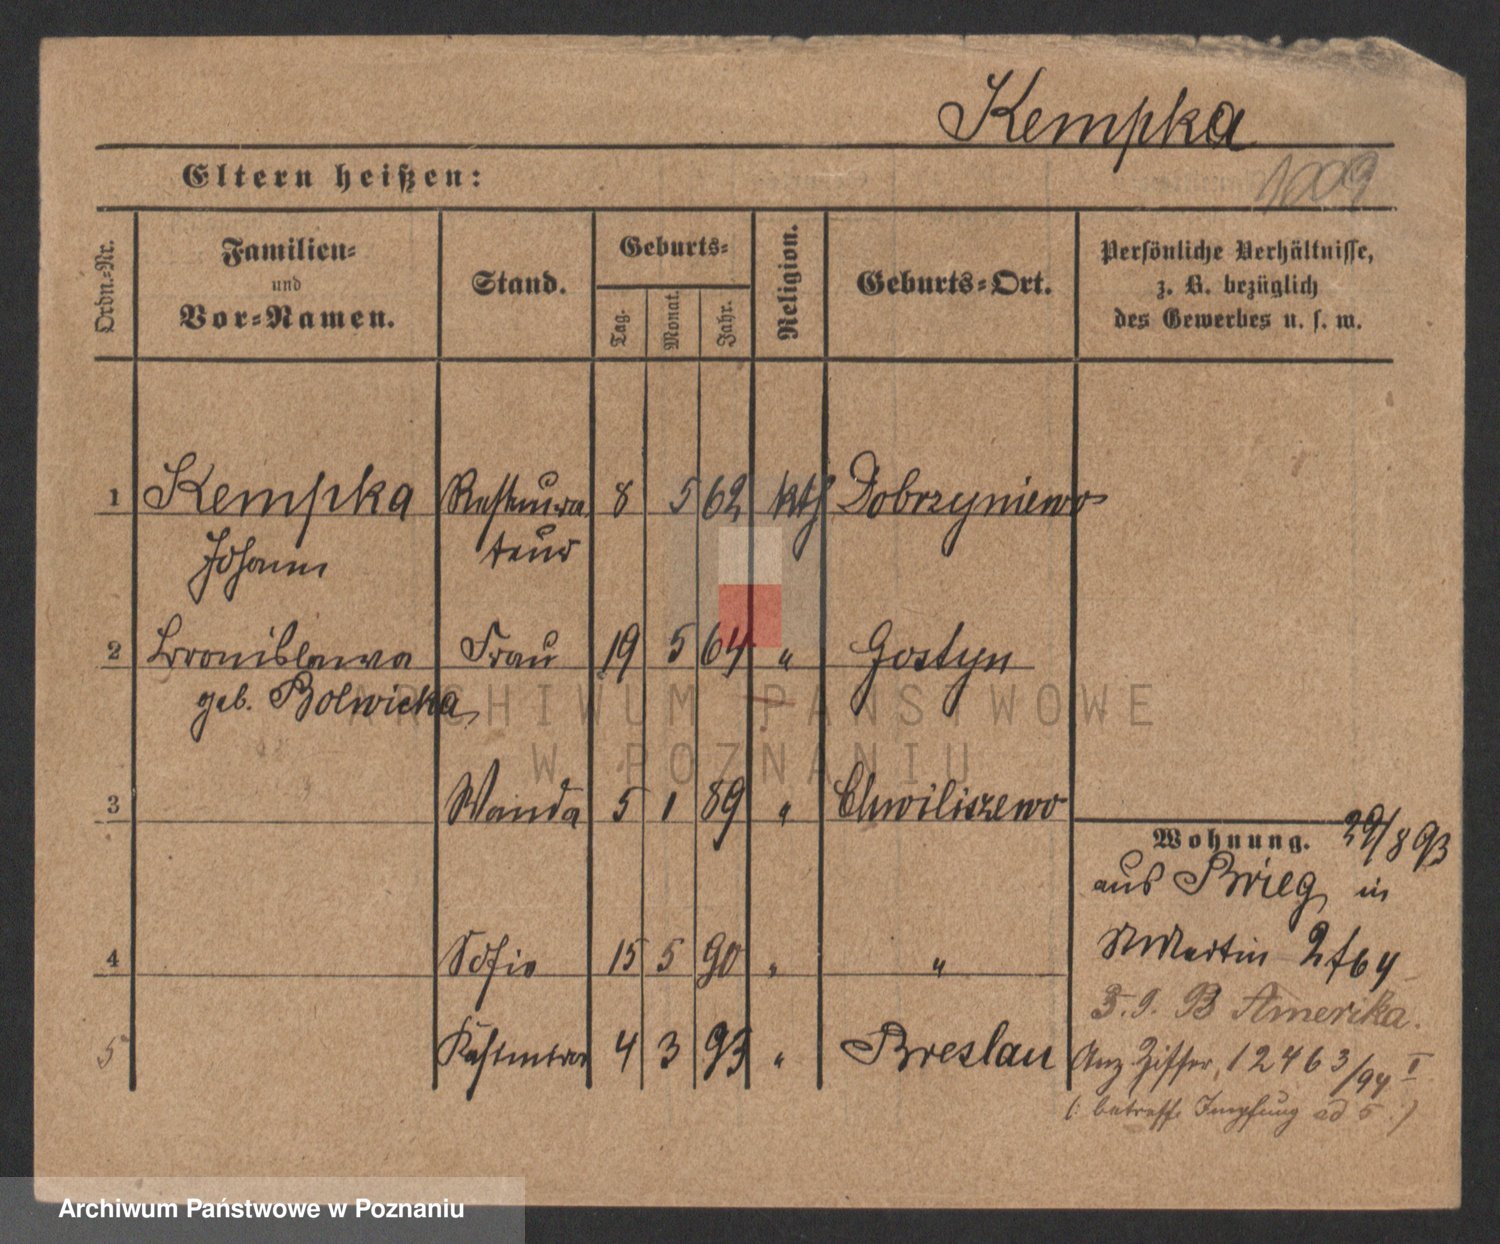 Kempka
1009
Eltern heißen:
Ordn.-Nr.
Familien-
und
Vor-Namen.
Stand.
Geburts-
Tag.
Monat.
Jahr.
Religion.
Geburts-Ort.
Persönliche Verhältnisse,
z. B. bezüglich
des Gewerbes u. s. w.
1 Kempka Restaura- 8 5 62 kth Dobrzyniewo
Johann teur
2 Bronislawa Frau 19 5 64 " Gostyn
geb. Bolwicka
ARCHIWUM PAŃSTWOWE
W POZNANIU
3 Wanda 5 1 89 " Chwiliszewo
Wohnung. 29/8 93
aus Brieg in
StMartin 2
4 Sofie 15 5 90 " "
Z. B Amerika.
5 4 3 93 " Breslau
Anz Ziffer, 12463/94 I
(: betreffs Impfung ad 5 :)
Archiwum Państwowe w Poznaniu